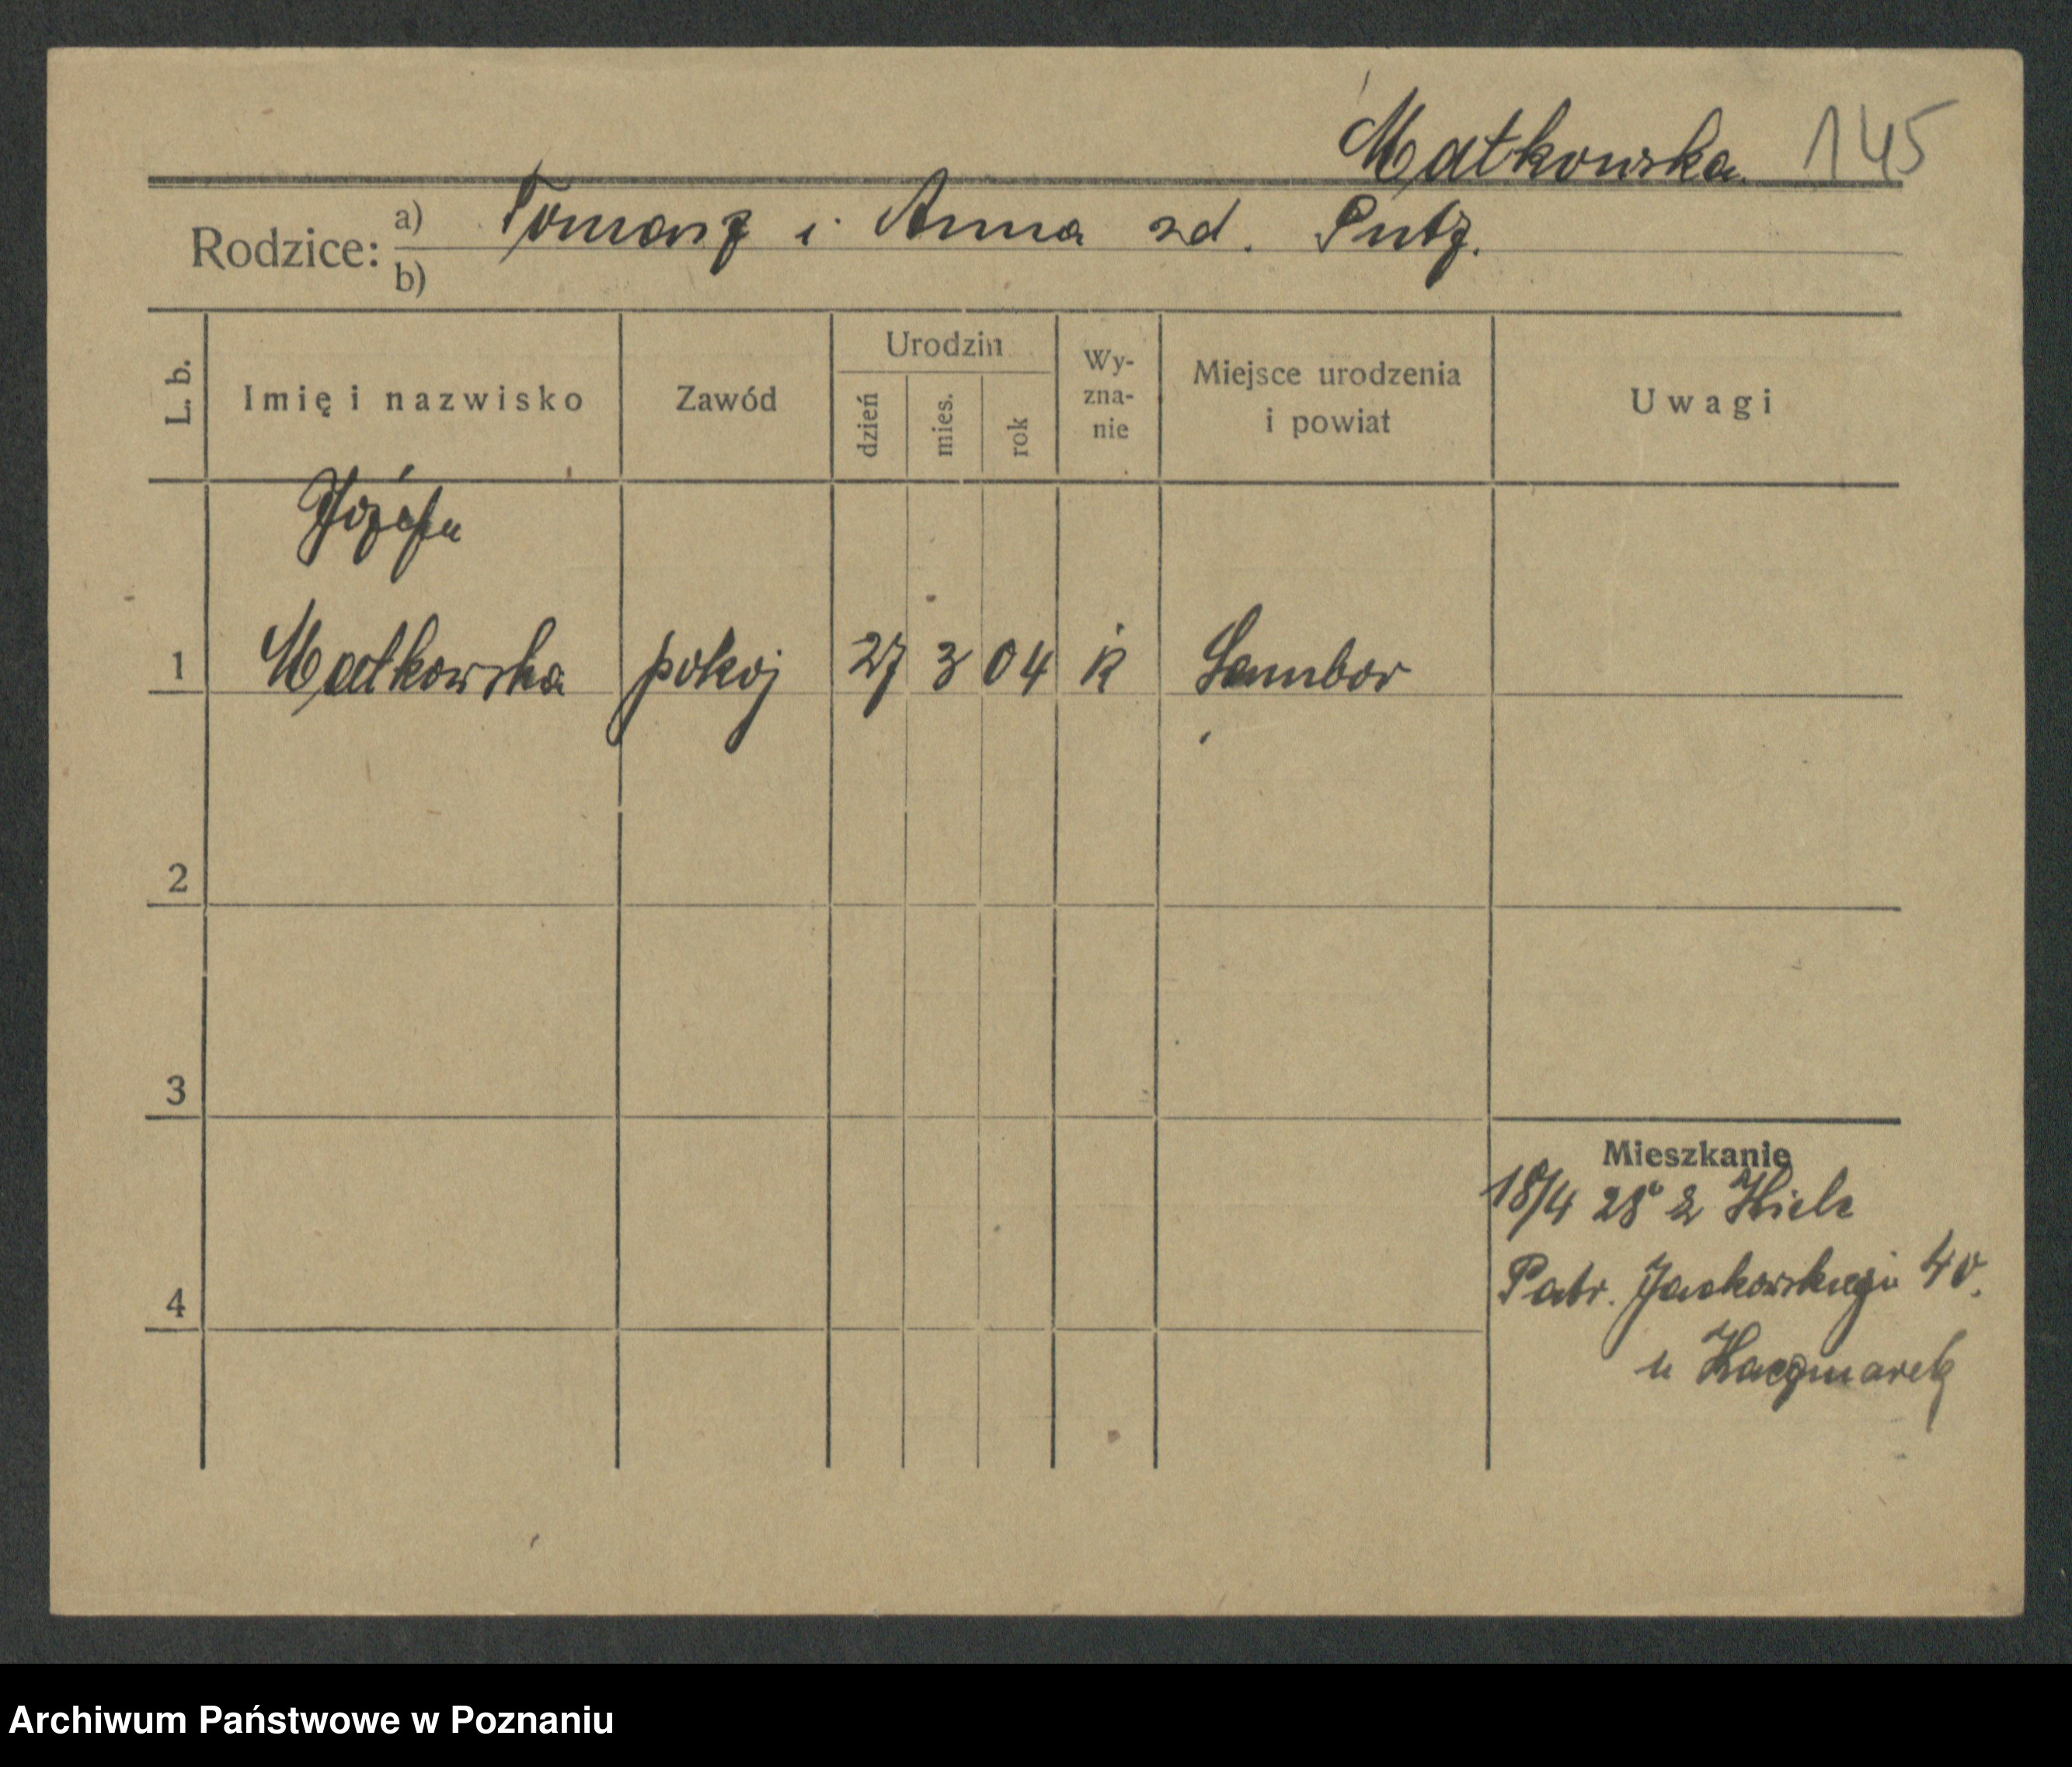 Matkowska. 145
Rodzice: a) Tomasz i Anna zd. Putz.
b)
L. b. Imię i nazwisko Zawód Urodzin dzień mies. rok Wy-zna-nie Miejsce urodzenia i powiat Uwagi
Józefa
1 Matkowska pokoj 27 3 04 k Sambor
2
3
Mieszkanie
18/4 28 z Kielc
4 Patr. Jackowskiego 40.
u Kaczmarek
Archiwum Państwowe w Poznaniu